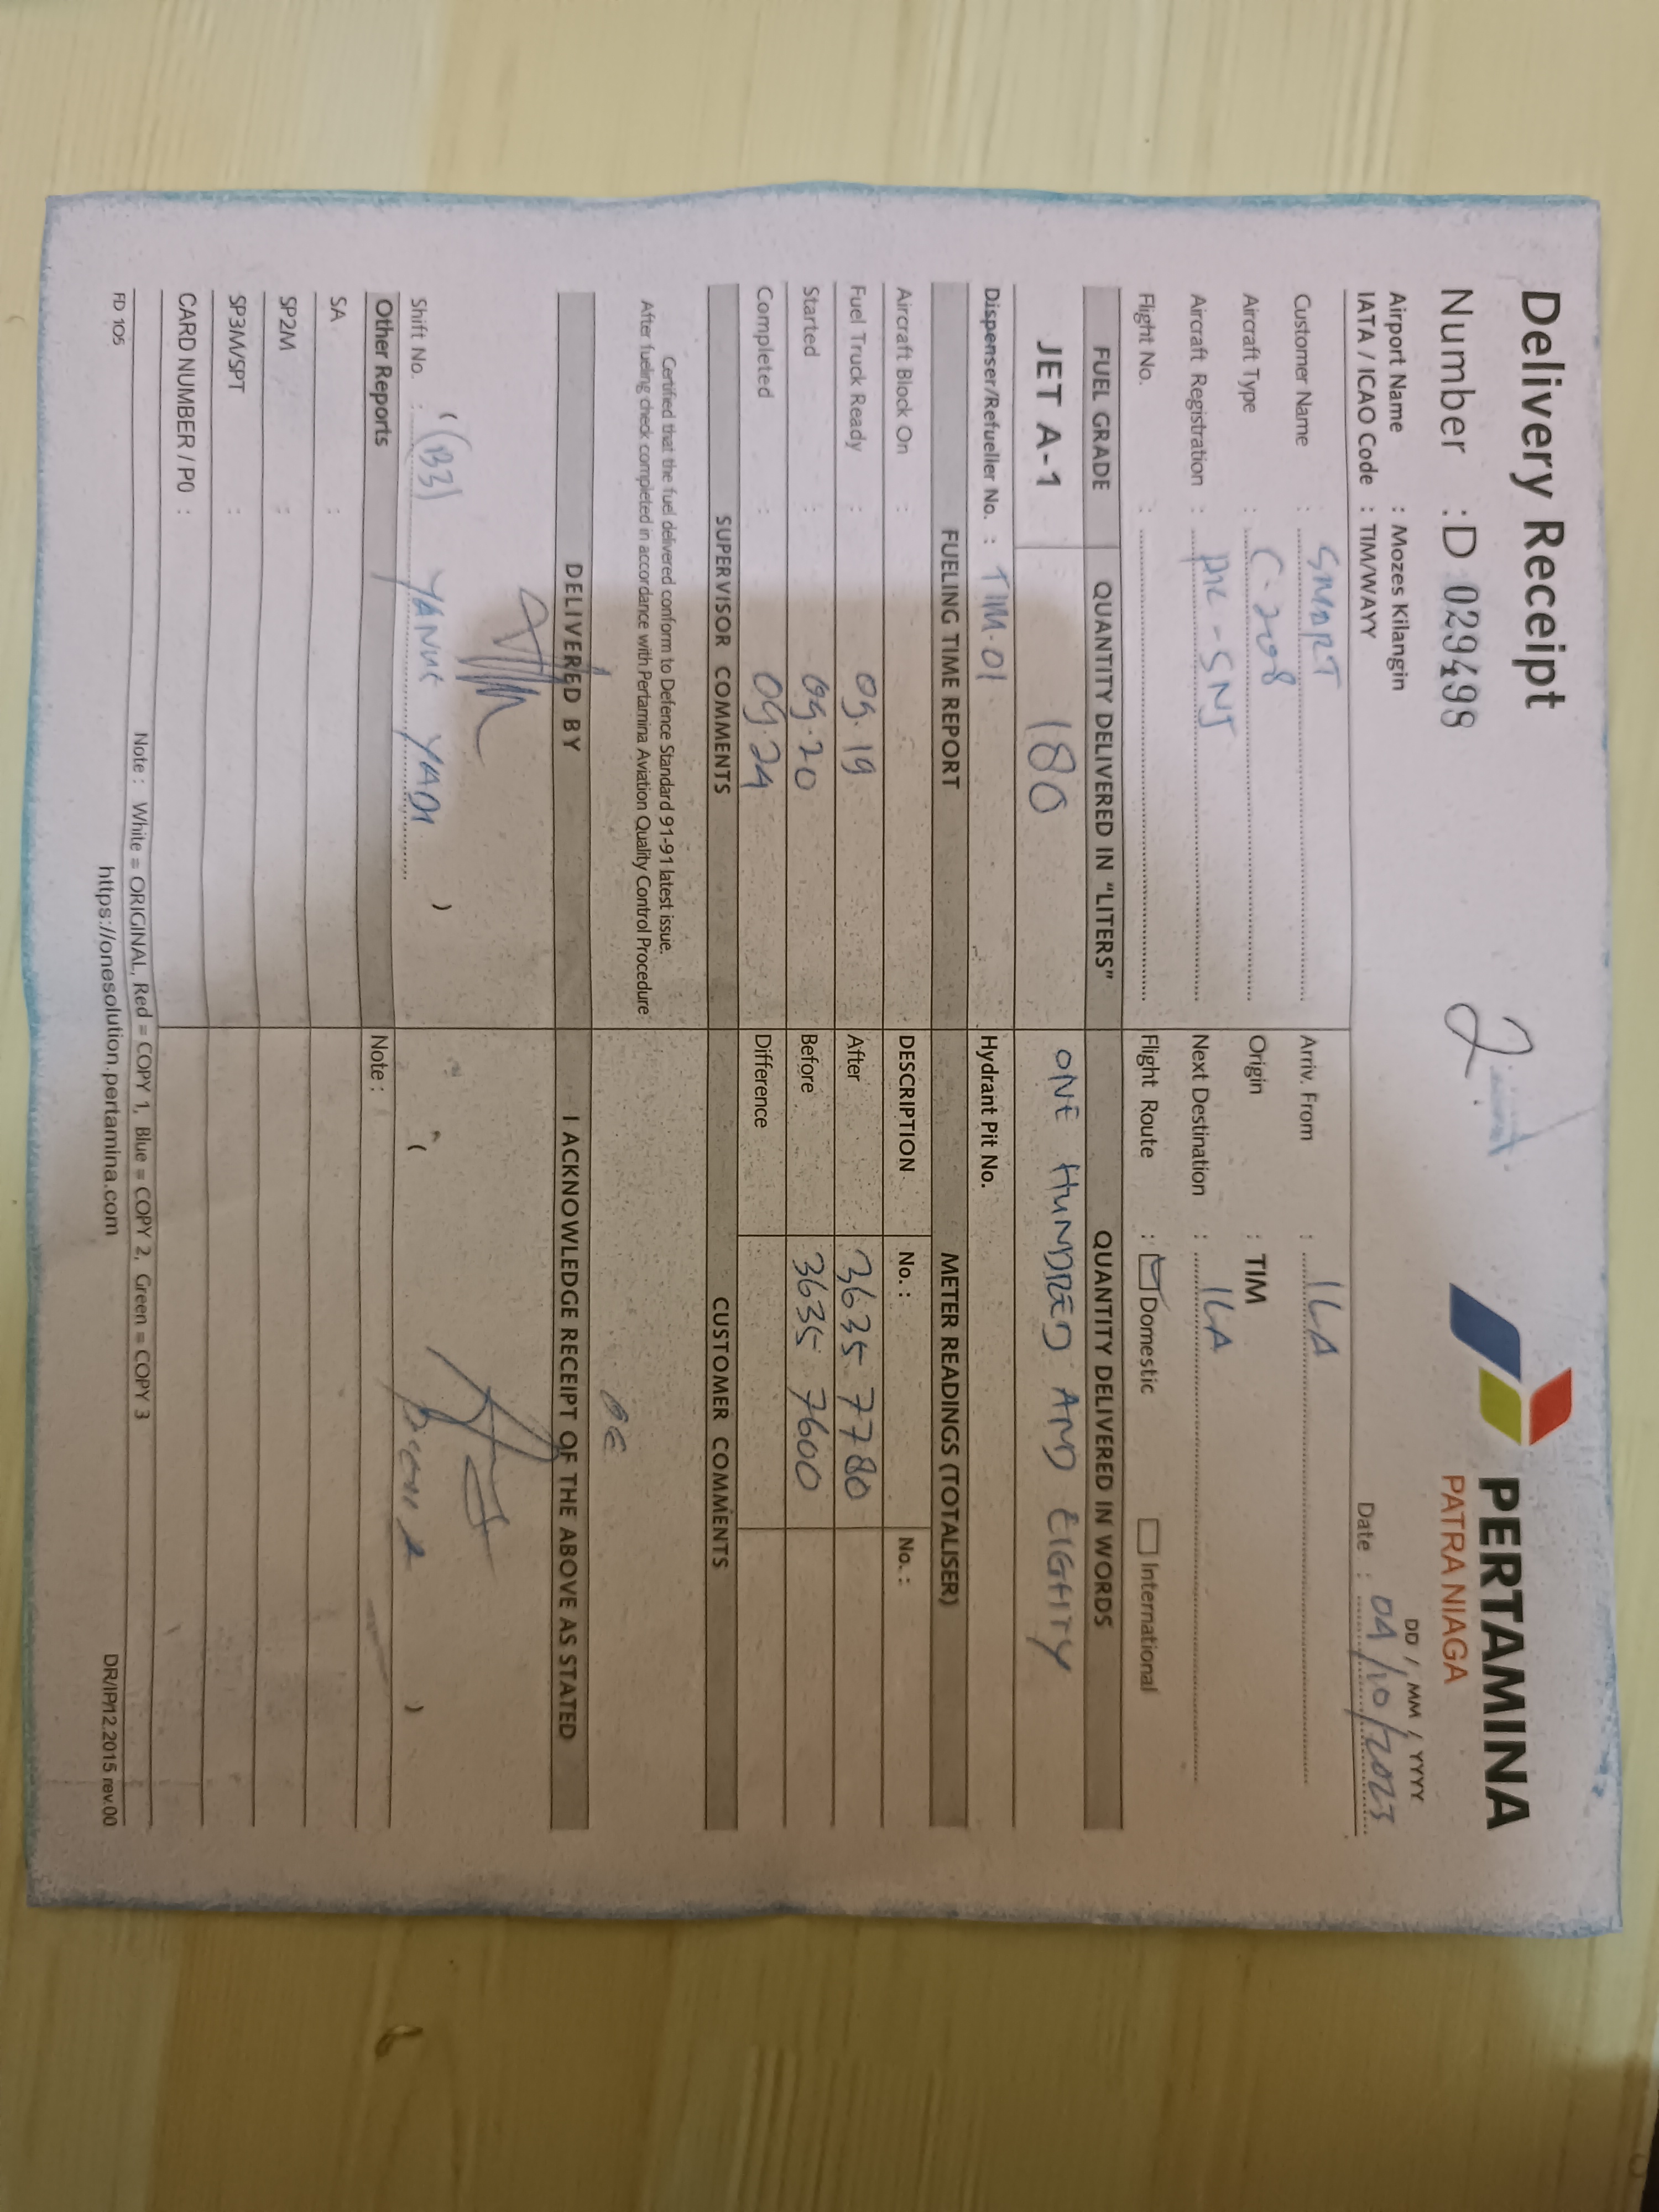 Delivery Receipt
Number : D 029498
PERTAMINA
PATRA NIAGA
Airport Name : Mozes Kilangin
IATA / ICAO Code : TIM/WAYY
DD / MM / YYYY
Date : 04/10/2023
Customer Name : SMART
Arriv. From : ILA
Aircraft Type : C-208
Origin : TIM
Aircraft Registration : PK-SNJ
Next Destination : ILA
Flight No. :
Flight Route : Domestic International
FUEL GRADE QUANTITY DELIVERED IN "LITERS" QUANTITY DELIVERED IN WORDS
JET A-1 180 ONE HUNDRED AND EIGHTY
Dispenser/Refueller No. : TIM.01 Hydrant Pit No.
FUELING TIME REPORT METER READINGS (TOTALISER)
Aircraft Block On : DESCRIPTION No. : No. :
Fuel Truck Ready : 09.19 After 3635 7780
Started : 09.20 Before 3635 7600
Completed : 09.24 Difference
SUPERVISOR COMMENTS CUSTOMER COMMENTS
Certified that the fuel delivered conform to Defence Standard 91-91 latest issue.
After fueling check completed in accordance with Pertamina Aviation Quality Control Procedure
DELIVERED BY I ACKNOWLEDGE RECEIPT OF THE ABOVE AS STATED
( ) ( )
Shift No. : (B3) YADI
Other Reports Note :
SA :
SP2M :
SP3M/SPT :
CARD NUMBER / PO :
Note : White = ORIGINAL, Red = COPY 1, Blue = COPY 2, Green = COPY 3
FD 105 https://onesolution.pertamina.com DR/IP/12.2015 rev.00